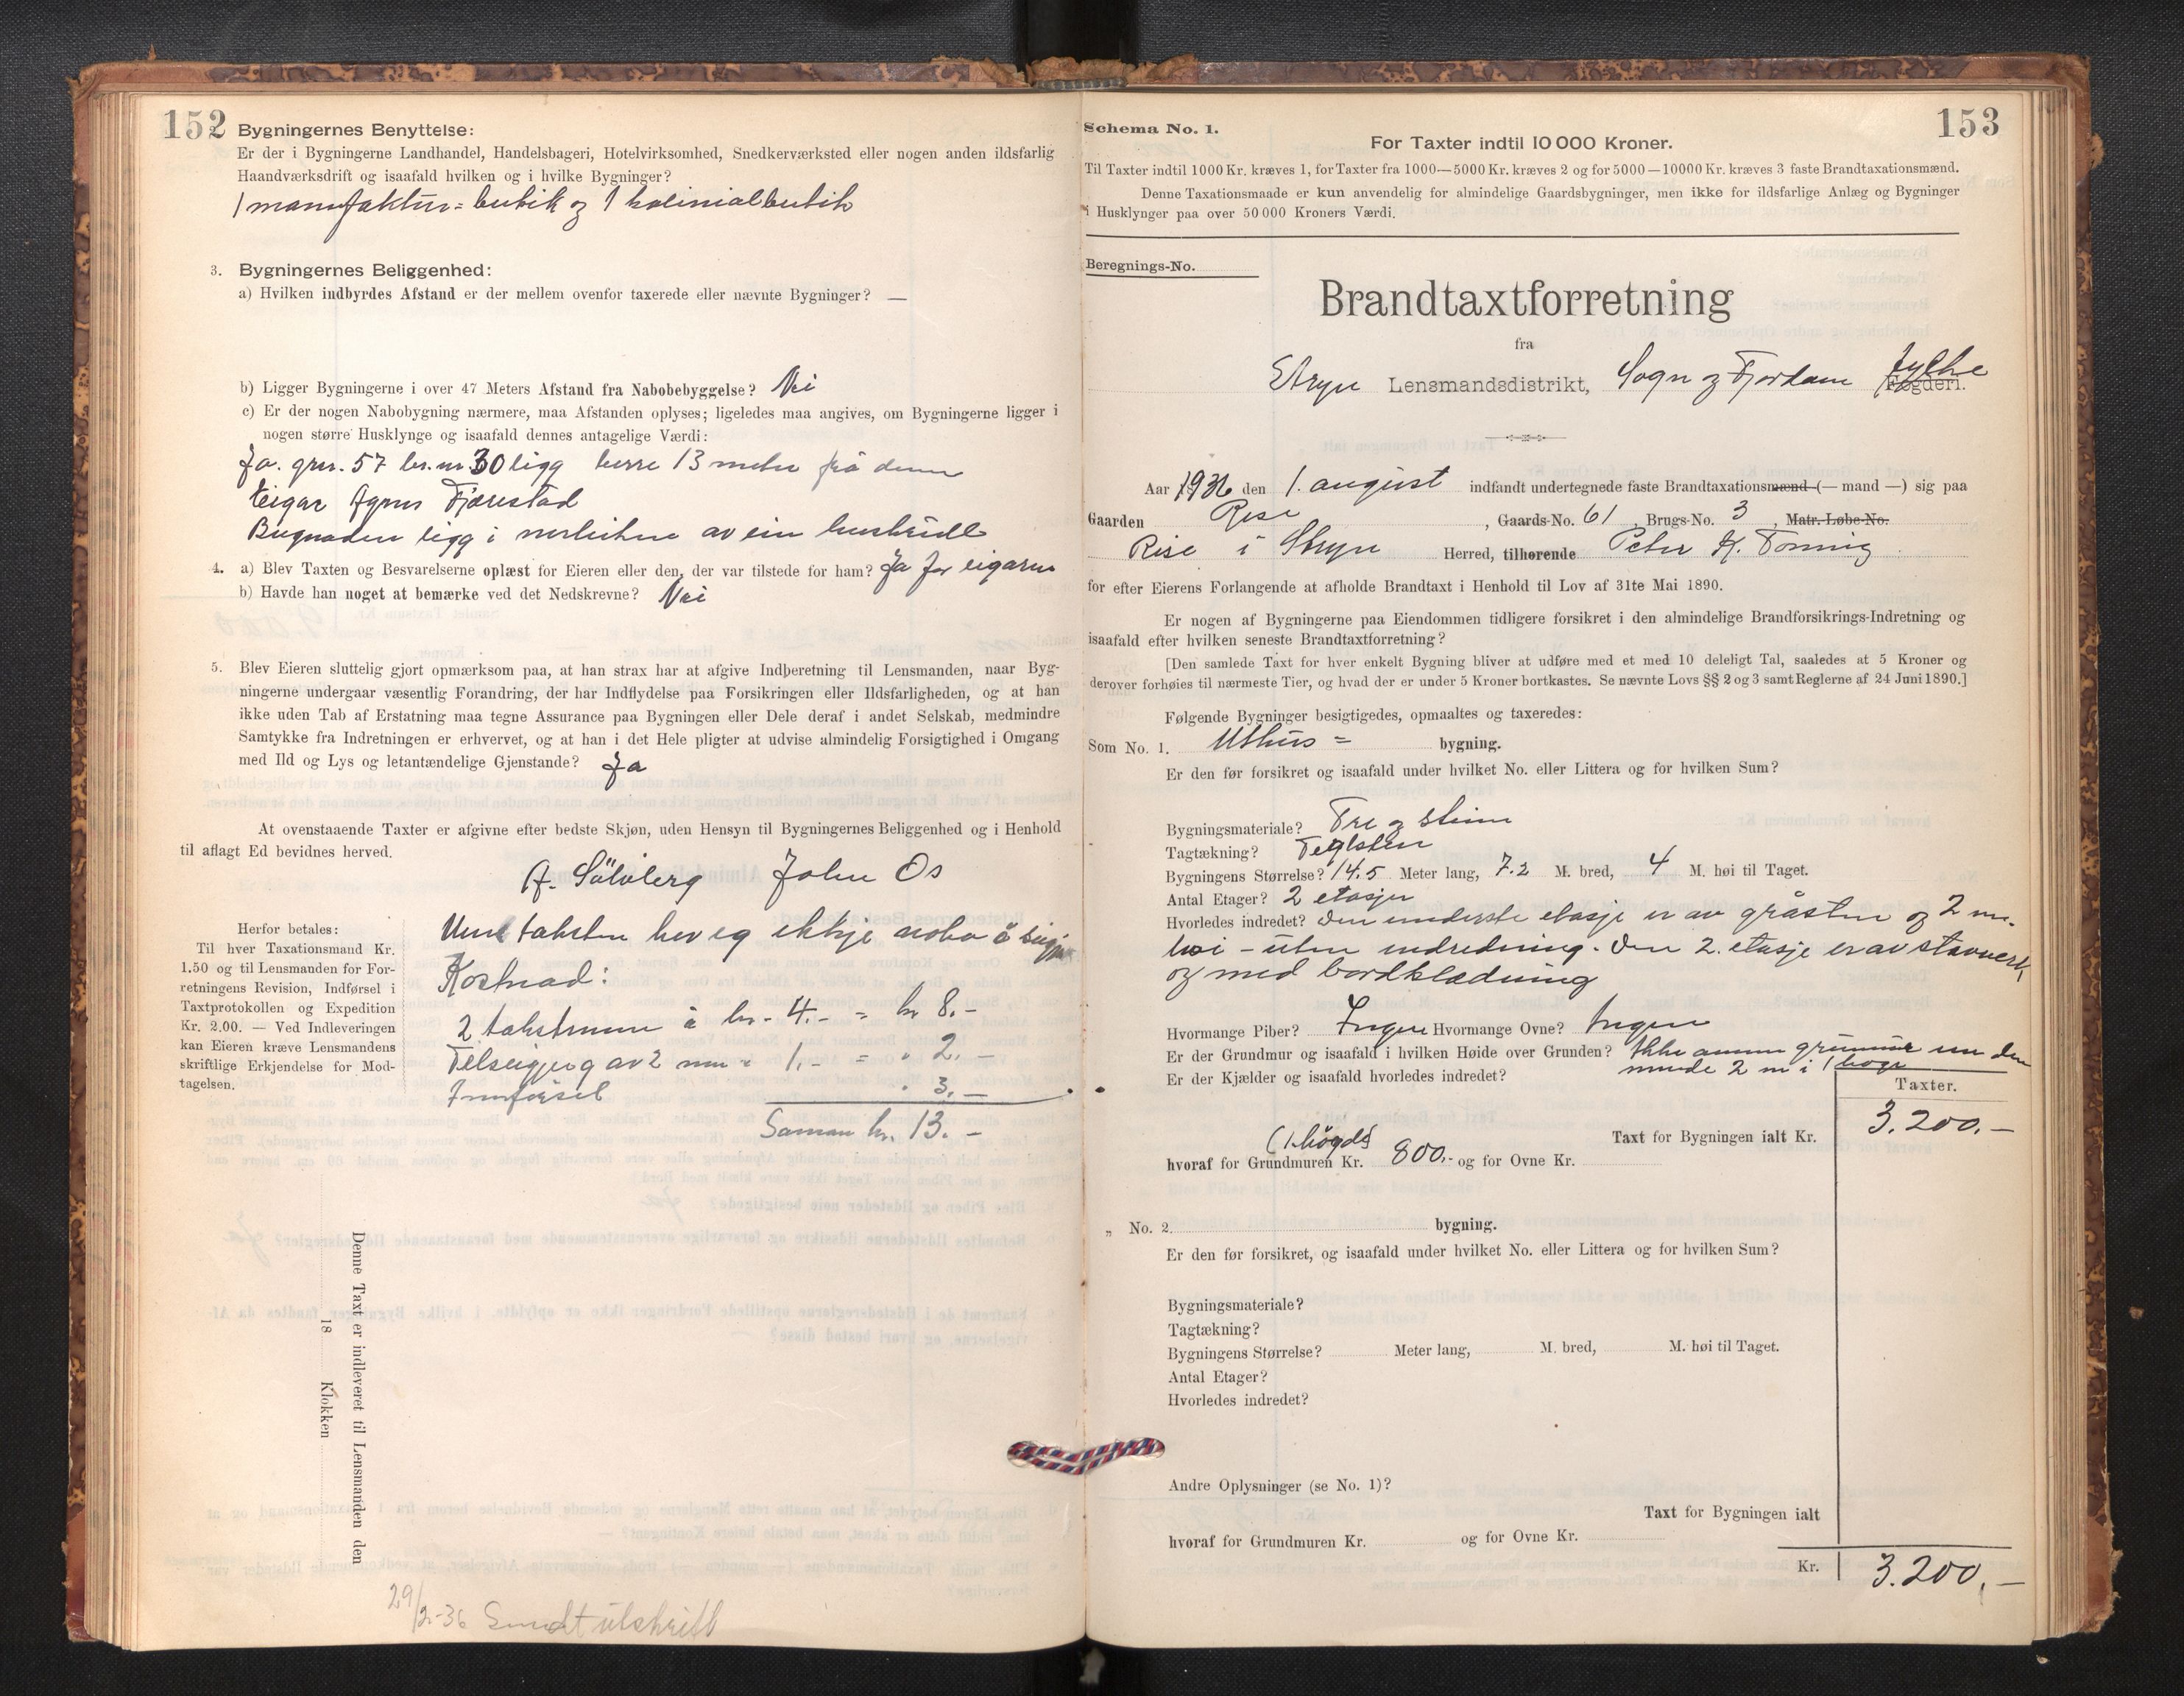 152
Bygningernes Benyttelse:
Er der i Bygningerne Landhandel, Handelsbageri, Hotelvirksomhed, Snedkerværksted eller nogen anden ildsfarlig
Haandværksdrift og isaafald hvilken og i hvilke Bygninger?
1 manufaktur= butik og 1 kolinialbutik
3. Bygningernes Beliggenhed:
a) Hvilken indbyrdes Afstand er der mellem ovenfor taxerede eller nævnte Bygninger? —
b) Ligger Bygningerne i over 47 Meters Afstand fra Nabobebyggelse? Nei
c) Er der nogen Nabobygning nærmere, maa Afstanden oplyses; ligeledes maa angives, om Bygningerne ligger i
nogen større Husklynge og isaafald dennes antagelige Værdi:
Ja. gnr. 57 br.nr 30 ligg berre 13 meter frå denne
eigar Agnes Fjærestad
Bygnaden ligg i av ein
4. a) Blev Taxten og Besvarelserne oplæst for Eieren eller den, der var tilstede for ham? Ja for eigaren
b) Havde han noget at bemærke ved det Nedskrevne? Nei
5. Blev Eieren sluttelig gjort opmærksom paa, at han strax har at afgive Indberetning til Lensmanden, naar Byg-
ningerne undergaar væsentlig Forandring, der har Indflydelse paa Forsikringen eller Ildsfarligheden, og at han
ikke uden Tab af Erstatning maa tegne Assurance paa Bygningen eller Dele deraf i andet Selskab, medmindre
Samtykke fra Indretningen er erhvervet, og at han i det Hele pligter at udvise almindelig Forsigtighed i Omgang
med Ild og Lys og letantændelige Gjenstande? Ja
At ovenstaaende Taxter er afgivne efter bedste Skjøn, uden Hensyn til Bygningernes Beliggenhed og i Henhold
til aflagt Ed bevidnes herved.
A. Sölvberg John Os
Herfor betales:
Til hver Taxationsmand Kr.
1.50 og til Lensmanden for For-
retningens Revision, Indførsel i
Taxtprotokollen og Expedition
Kr. 2.00. — Ved Indleveringen
kan Eieren kræve Lensmandens
skriftlige Erkjendelse for Mod-
tagelsen.
Um taksten hev eg ikkje noko å segja
Kostnad:
2 takstmenn à kr. 4.- = kr 8.-
Tilseigjing av 2 mn - 1.- = " 2.-
Innførsel " 3.-
Saman kr. 13.-
Denne Taxt er indleveret til Lensmanden den
18 Klokken
29/2-36 Sendt utskrift
153
Schema No. 1.
For Taxter indtil 10 000 Kroner.
Til Taxter indtil 1000 Kr. kræves 1, for Taxter fra 1000—5000 Kr. kræves 2 og for 5000—10000 Kr. kræves 3 faste Brandtaxationsmænd.
Denne Taxationsmaade er kun anvendelig for almindelige Gaardsbygninger, men ikke for ildsfarlige Anlæg og Bygninger
i Husklynger paa over 50 000 Kroners Værdi.
Beregnings-No.
Brandtaxtforretning
fra
Stryn Lensmandsdistrikt, Sogn og Fjordane fylke Fogderi.
Aar 1936 den 1. august indfandt undertegnede faste Brandtaxationsmænd (— mand —) sig paa
Gaarden Rise, Gaards-No. 61, Brugs-No. 3, Matr. Løbe-No.
Rise i Stryn Herred, tilhørende Peter K. Tonning
for efter Eierens Forlangende at afholde Brandtaxt i Henhold til Lov af 31te Mai 1890.
Er nogen af Bygningerne paa Eiendommen tidligere forsikret i den almindelige Brandforsikrings-Indretning og
isaafald efter hvilken seneste Brandtaxtforretning?
[Den samlede Taxt for hver enkelt Bygning bliver at udføre med et med 10 deleligt Tal, saaledes at 5 Kroner og
derover forhøies til nærmeste Tier, og hvad der er under 5 Kroner bortkastes. Se nævnte Lovs §§ 2 og 3 samt Reglerne af 24 Juni 1890.]
Følgende Bygninger besigtigedes, opmaaltes og taxeredes:
Som No. 1. Uthus = bygning.
Er den før forsikret og isaafald under hvilket No. eller Littera og for hvilken Sum?
Bygningsmateriale? Tre og stein
Tagtækning? Teglstein
Bygningens Størrelse? 14.5 Meter lang, 7.2 M. bred, 4 M. høi til Taget.
Antal Etager? 2 etasjer
Hvorledes indredet? Den underste etasje er av gråstein og 2 m.
høi - uten indredning. Den 2. etasje er av stavverk
og med bordklædning
Hvormange Piber? Ingen Hvormange Ovne? Ingen
Er der Grundmur og isaafald i hvilken Høide over Grunden? Ikke annen grunnmur enn den
nevnte 2 m i 1 høgd
Er der Kjælder og isaafald hvorledes indredet?
Taxter.
Taxt for Bygningen ialt Kr. 3.200.—
(1 høgde)
hvoraf for Grundmuren Kr. 800.- og for Ovne Kr.
„ No. 2. bygning.
Er den før forsikret, og isaafald under hvilket No. eller Littera og for hvilken Sum?
Bygningsmateriale?
Tagtækning?
Bygningens Størrelse? Meter lang, M. bred, M. høi til Taget.
Antal Etager?
Hvorledes indredet?
Andre Oplysninger (se No. 1)?
Taxt for Bygningen ialt
hvoraf for Grundmuren Kr. og for Ovne Kr.
Kr. 3.200.—